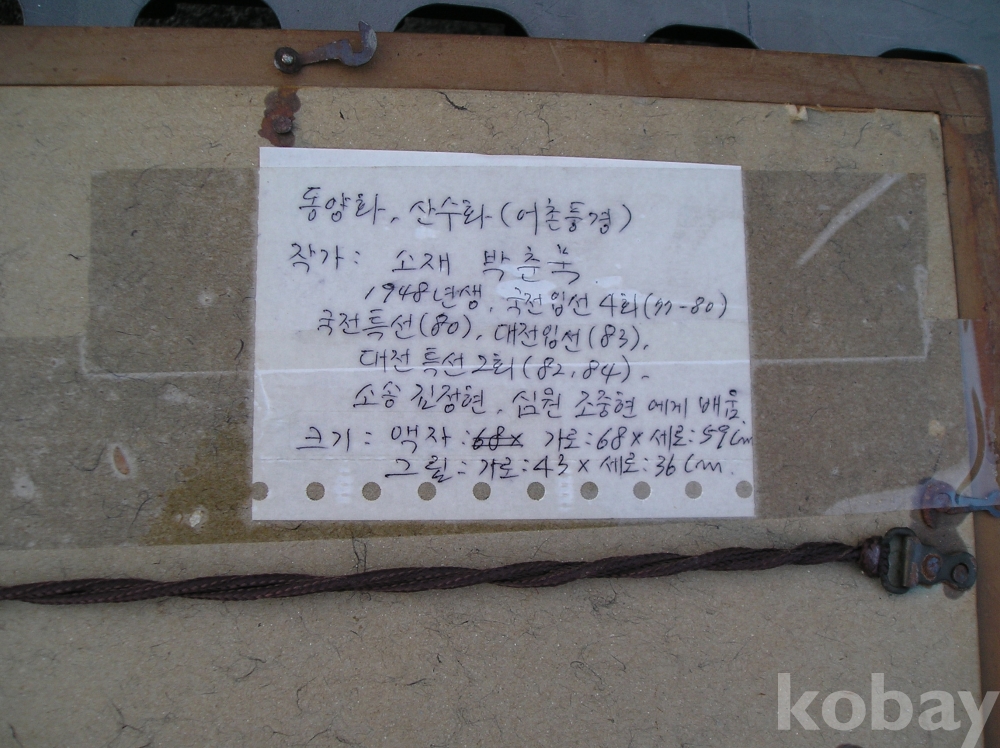 동양화, 산수화 (어촌풍경)
작가: 소재 박춘묵
1948년생, 국전입선 4회 (77-80)
국전특선(80), 대전입선(83),
대전 특선 2회 (82, 84).
소송 김정현, 심원 조중현 에게 배움
크기: 액자: 68× 가로: 68 × 세로: 59cm
그림: 가로: 43 × 세로: 36cm.
kobay